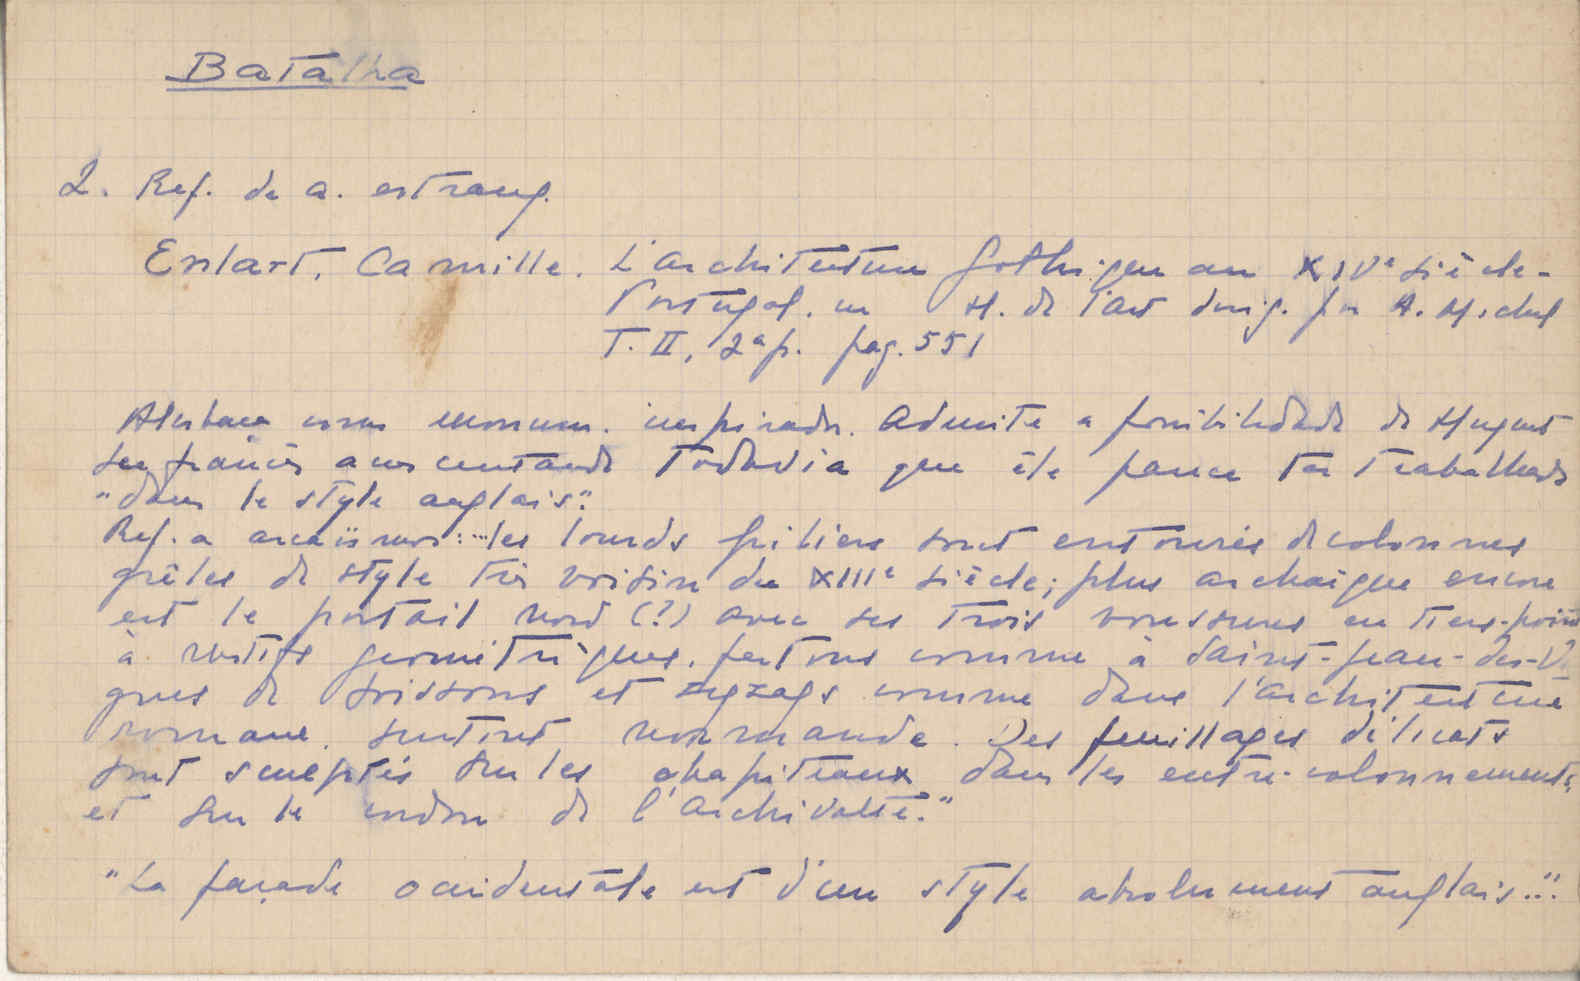 Batalha
2. Ref. de a. estrang.
Enlart, Camille. L'architecture gothique au XIVe siècle -
Portugal. in H. de l'art dirig. par A. Michel
T. II, 2ª p. pag. 551
como monum. inspirador. Admite a possibilidade de Huguet
ser francês acrescentando todavia que êle parece ter trabalhado
"dans le style anglais".
Ref. a arcaismos: "les lourds piliers sont entourés de colonnes
grêles de style très voisin du XIIIe siècle; plus archaïque encore
est le portail nord (?) avec ses trois voussures en tiers-point
à motifs géométriques, festons comme à Saint-Jean-des-Vi
gnes de Soissons et zigzags comme dans l'architecture
romane, surtout normande. Des feuillages délicats
sont sculptés sur les chapiteaux dans les entre-colonnements
et sur le cordon de l'archivolte."
"La façade occidentale est d'un style absolument anglais..."